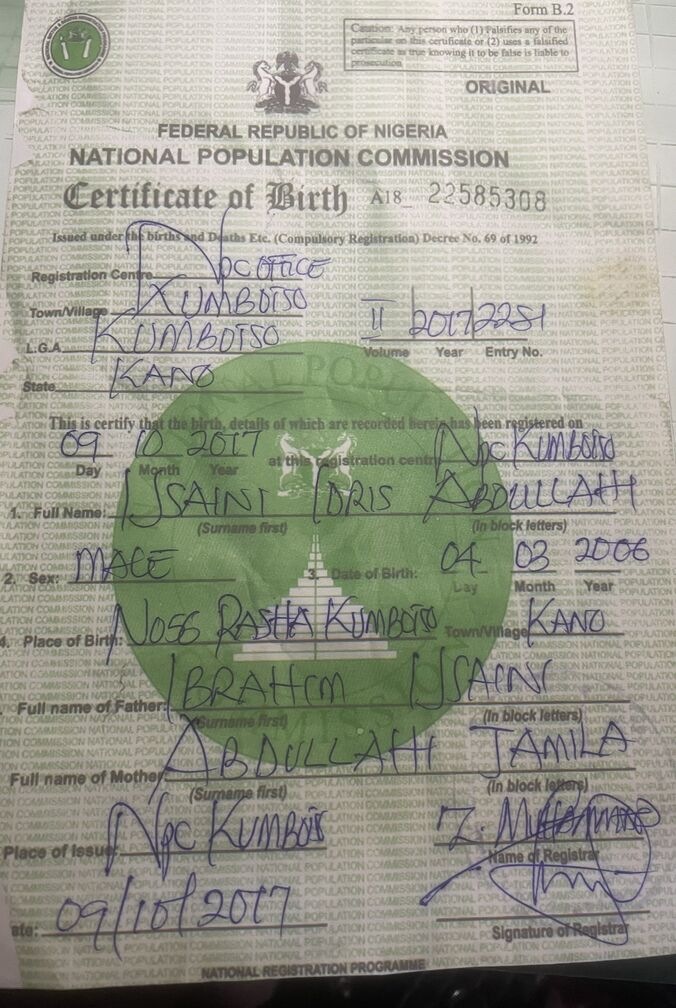 Form B.2
Caution: Any person who (1) Falsifies any of the
particular on this certificate or (2) uses a falsified
certificate as true knowing it to be false is liable to
prosecution
ORIGINAL
FEDERAL REPUBLIC OF NIGERIA
NATIONAL POPULATION COMMISSION
Certificate of Birth A18_ 22585308
Issued under the births and Deaths Etc. (Compulsory Registration) Decree No. 69 of 1992
Registration Centre NPC OFFICE
Town/Village KUMBOTSO
L.G.A KUMBOTSO II 2017 2251
Volume Year Entry No.
State KANO
This is certify that the birth, details of which are recorded herein has been registered on
09 10 2017 at this registration centre NPC KUMBOTSO
Day Month Year
1. Full Name: USAINI IDRIS ABDULLAHI
(Surname first) (In block letters)
2. Sex: MALE 3. Date of Birth: 04 03 2006
Day Month Year
4. Place of Birth: RASHA KUMBOTSO Town/Village KANO
Full name of Father: IBRAHIM USAINI
(Surname first) (In block letters)
Full name of Mother ABDULLAHI JAMILA
(Surname first) (In block letters)
Place of Issue NPC KUMBOTSO
Name of Registrar
ate: 09/10/2017
Signature of Registrar
NATIONAL REGISTRATION PROGRAMME